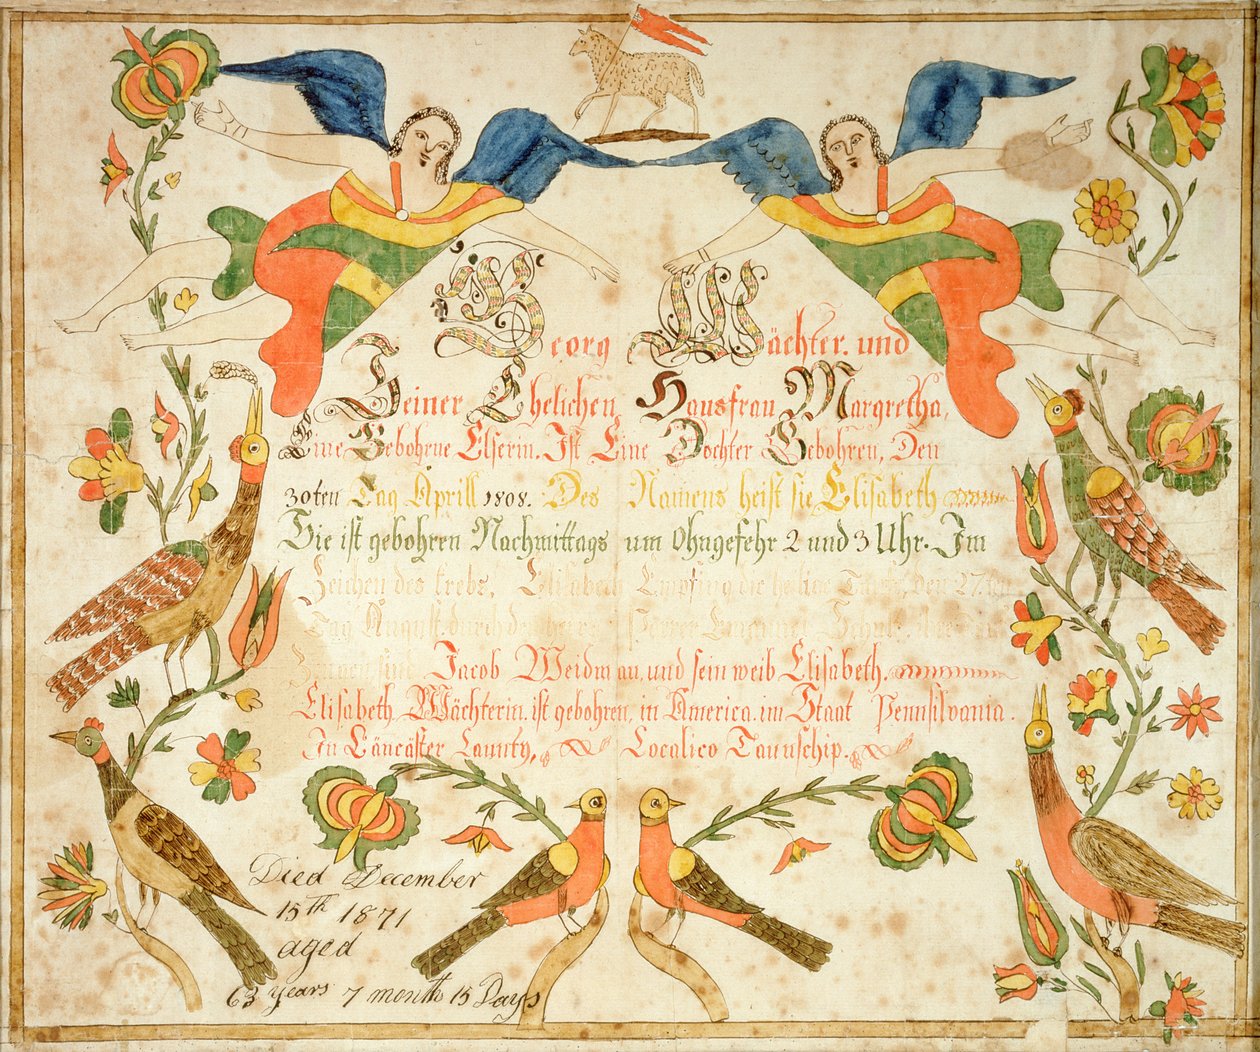 Georg Wächter. und
Seiner Ehelichen Hausfrau Margretha,
Eine Gebohrne Elserin. Ist Eine Dochter Gebohren, Den
30ten Tag Aprill 1808. Des Namens heist sie Elisabeth
Sie ist gebohren Nachmittags um Ohngefehr 2 und 3 Uhr. Im
Zeichen des krebs, Elisabeth Empfing die heilige Den 27
Tag August durch den
Zeugen sind Jacob Weidman, und sein weib Elisabeth.
Elisabeth Wächterin. ist gebohren, in America. im Staat Pennsilvania.
In Läncäster Caunty, Cocalico Taunschip.
Died December
15th 1871
aged
63 years 7 month 15 Days